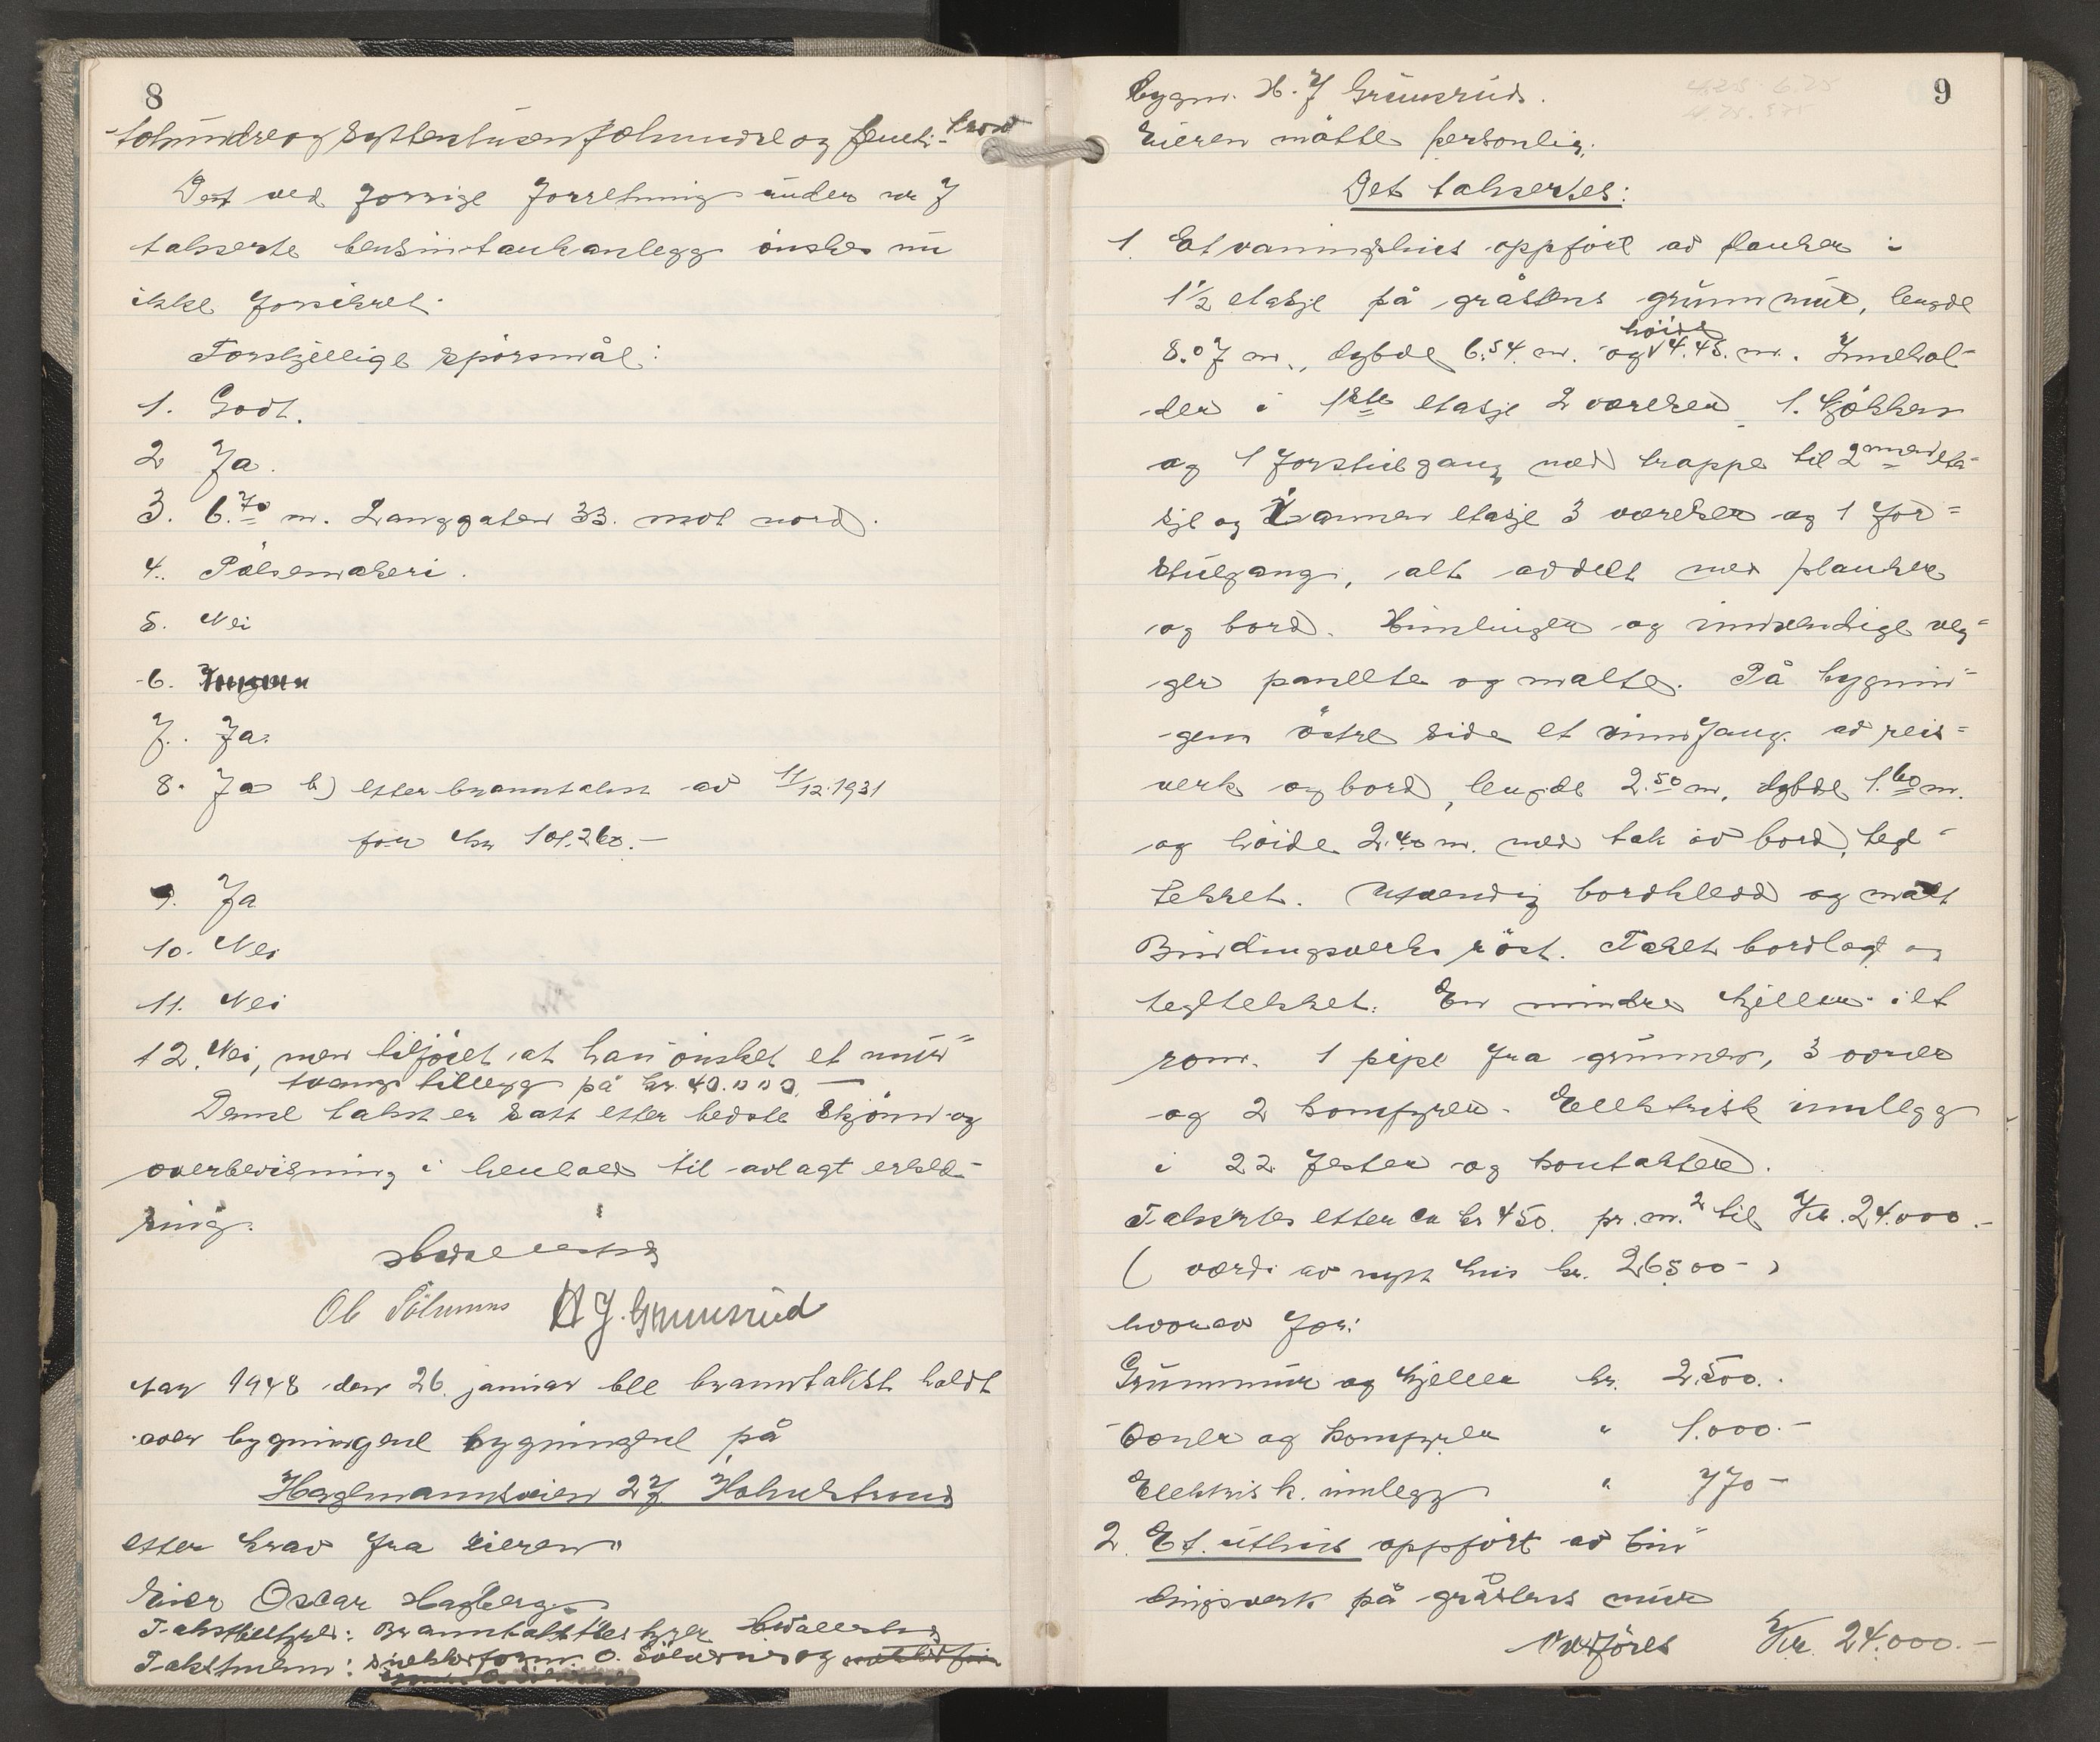 8
tohundreogsyttentusenfirehundre og femti- kron
Det ved forrige forretning under nr 7
takserte bensintankanlegg ønskes nu
ikke forsikret.
Forskjellige spørsmål:
1. Godt.
2 Ja.
3. 6.70 m. Langgaten 33. mot nord.
4. Pølsemakeri.
5. Nei
6.
7. Ja.
8. Ja b) etter branntakst av 11/12.1931
for kr 101.260.-
9. Ja
10. Nei
11. Nei
12. Nei, men tilføiet at han ønsket et mur=
tvangs tillegg på kr. 40.000.—
Denne takst er satt etter bedste skjønn og
overbevisning i henhold til avlagt erklæ=
ring.
H. J. Grunsrud
Aar 1948 den 26. januar ble branntakst holdt
over bygningene bygningene på
Hagemannsveien 27 Holmestrand
etter krav fra eieren.
Eier Oscar Hagberg
Takstbestyrer: Branntakstbestyrer
Takstmenn: snekkerform. O. Sølverud og
9
bygm. H. J Grunsrud.
Eieren møtte personlig.
Det takseres:
1. Et vaaningshus oppført av planker i
1½ etasje på gråstens grunnmur, lengde
8.07 m., dybde 6.54 m. og høide 4.45 m. Innehol=
der i 1ste etasje 2 værelser, 1. kjøkken
og 1 forstuegang med trappe til 2nnen eta=
sje og i annen etasje 3 værelser og 1 for=
stuegang, alt avdelt med planker
og bord. Himlinger og innvendige veg=
ger panelte og malte. På bygnin=
gens østre side et vinnfang av reis=
verk og bord, lengde 2.50 m, dybde 1.60 m.
og høide 2.40 m. med tak av bord, tegl=
tekket. Utvendig bordkledd og malt
Bindingsverks røst. Taket bordlagt og
tegltekket. En mindre kjeller i ett
rom. 1 pipe fra grunnen, 3 ovner
og 2 komfyrer. Elektrisk innlegg
i 22 fester og kontakter.
Takseres etter ca kr 450. pr. m.2 til Kr. 24.000.-
( værdi av nytt hus kr. 26500- )
hvorav for:
Grunnmur og kjeller kr. 2.500.-
Ovner og komfyrer " 1.000.-
Elektrisk. innlegg " 770-
2. Et. uthus oppført av bin=
dingsverk på gråstens mur
Overføres Kr. 24.000.-